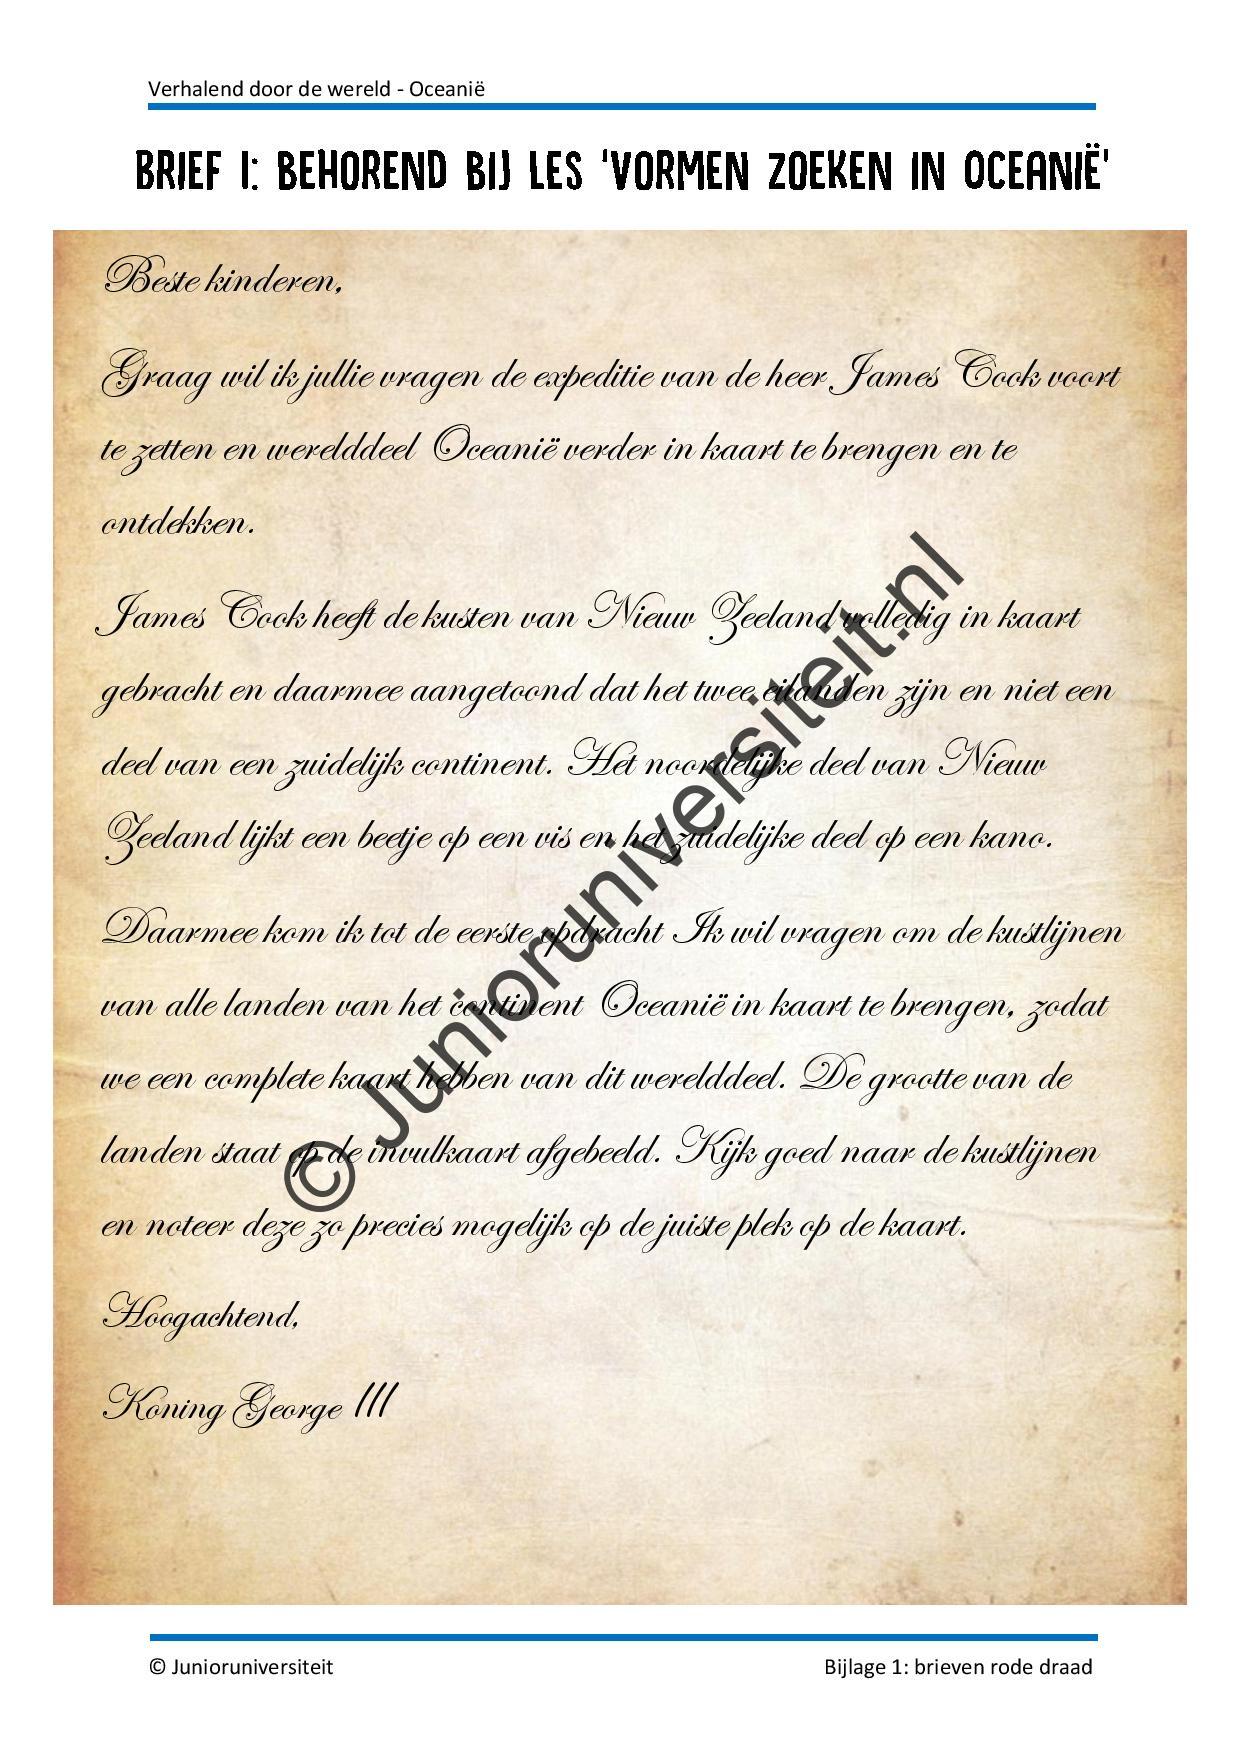 Verhalend door de wereld - Oceanië
BRIEF 1: BEHOREND BIJ LES 'VORMEN ZOEKEN IN OCEANIË'
Beste kinderen,
Graag wil ik jullie vragen de expeditie van de heer James Cook voort
te zetten en werelddeel Oceanië verder in kaart te brengen en te
ontdekken.
James Cook heeft de kusten van Nieuw Zeeland volledig in kaart
gebracht en daarmee aangetoond dat het twee eilanden zijn en niet een
deel van een zuidelijk continent. Het noordelijke deel van Nieuw
Zeeland lijkt een beetje op een vis en het zuidelijke deel op een kano.
Daarmee kom ik tot de eerste opdracht Ik wil vragen om de kustlijnen
van alle landen van het continent Oceanië in kaart te brengen, zodat
we een complete kaart hebben van dit werelddeel. De grootte van de
landen staat op de invulkaart afgebeeld. Kijk goed naar de kustlijnen
en noteer deze zo precies mogelijk op de juiste plek op de kaart.
Hoogachtend,
Koning George III
© Junioruniversiteit.nl
© Junioruniversiteit
Bijlage 1: brieven rode draad